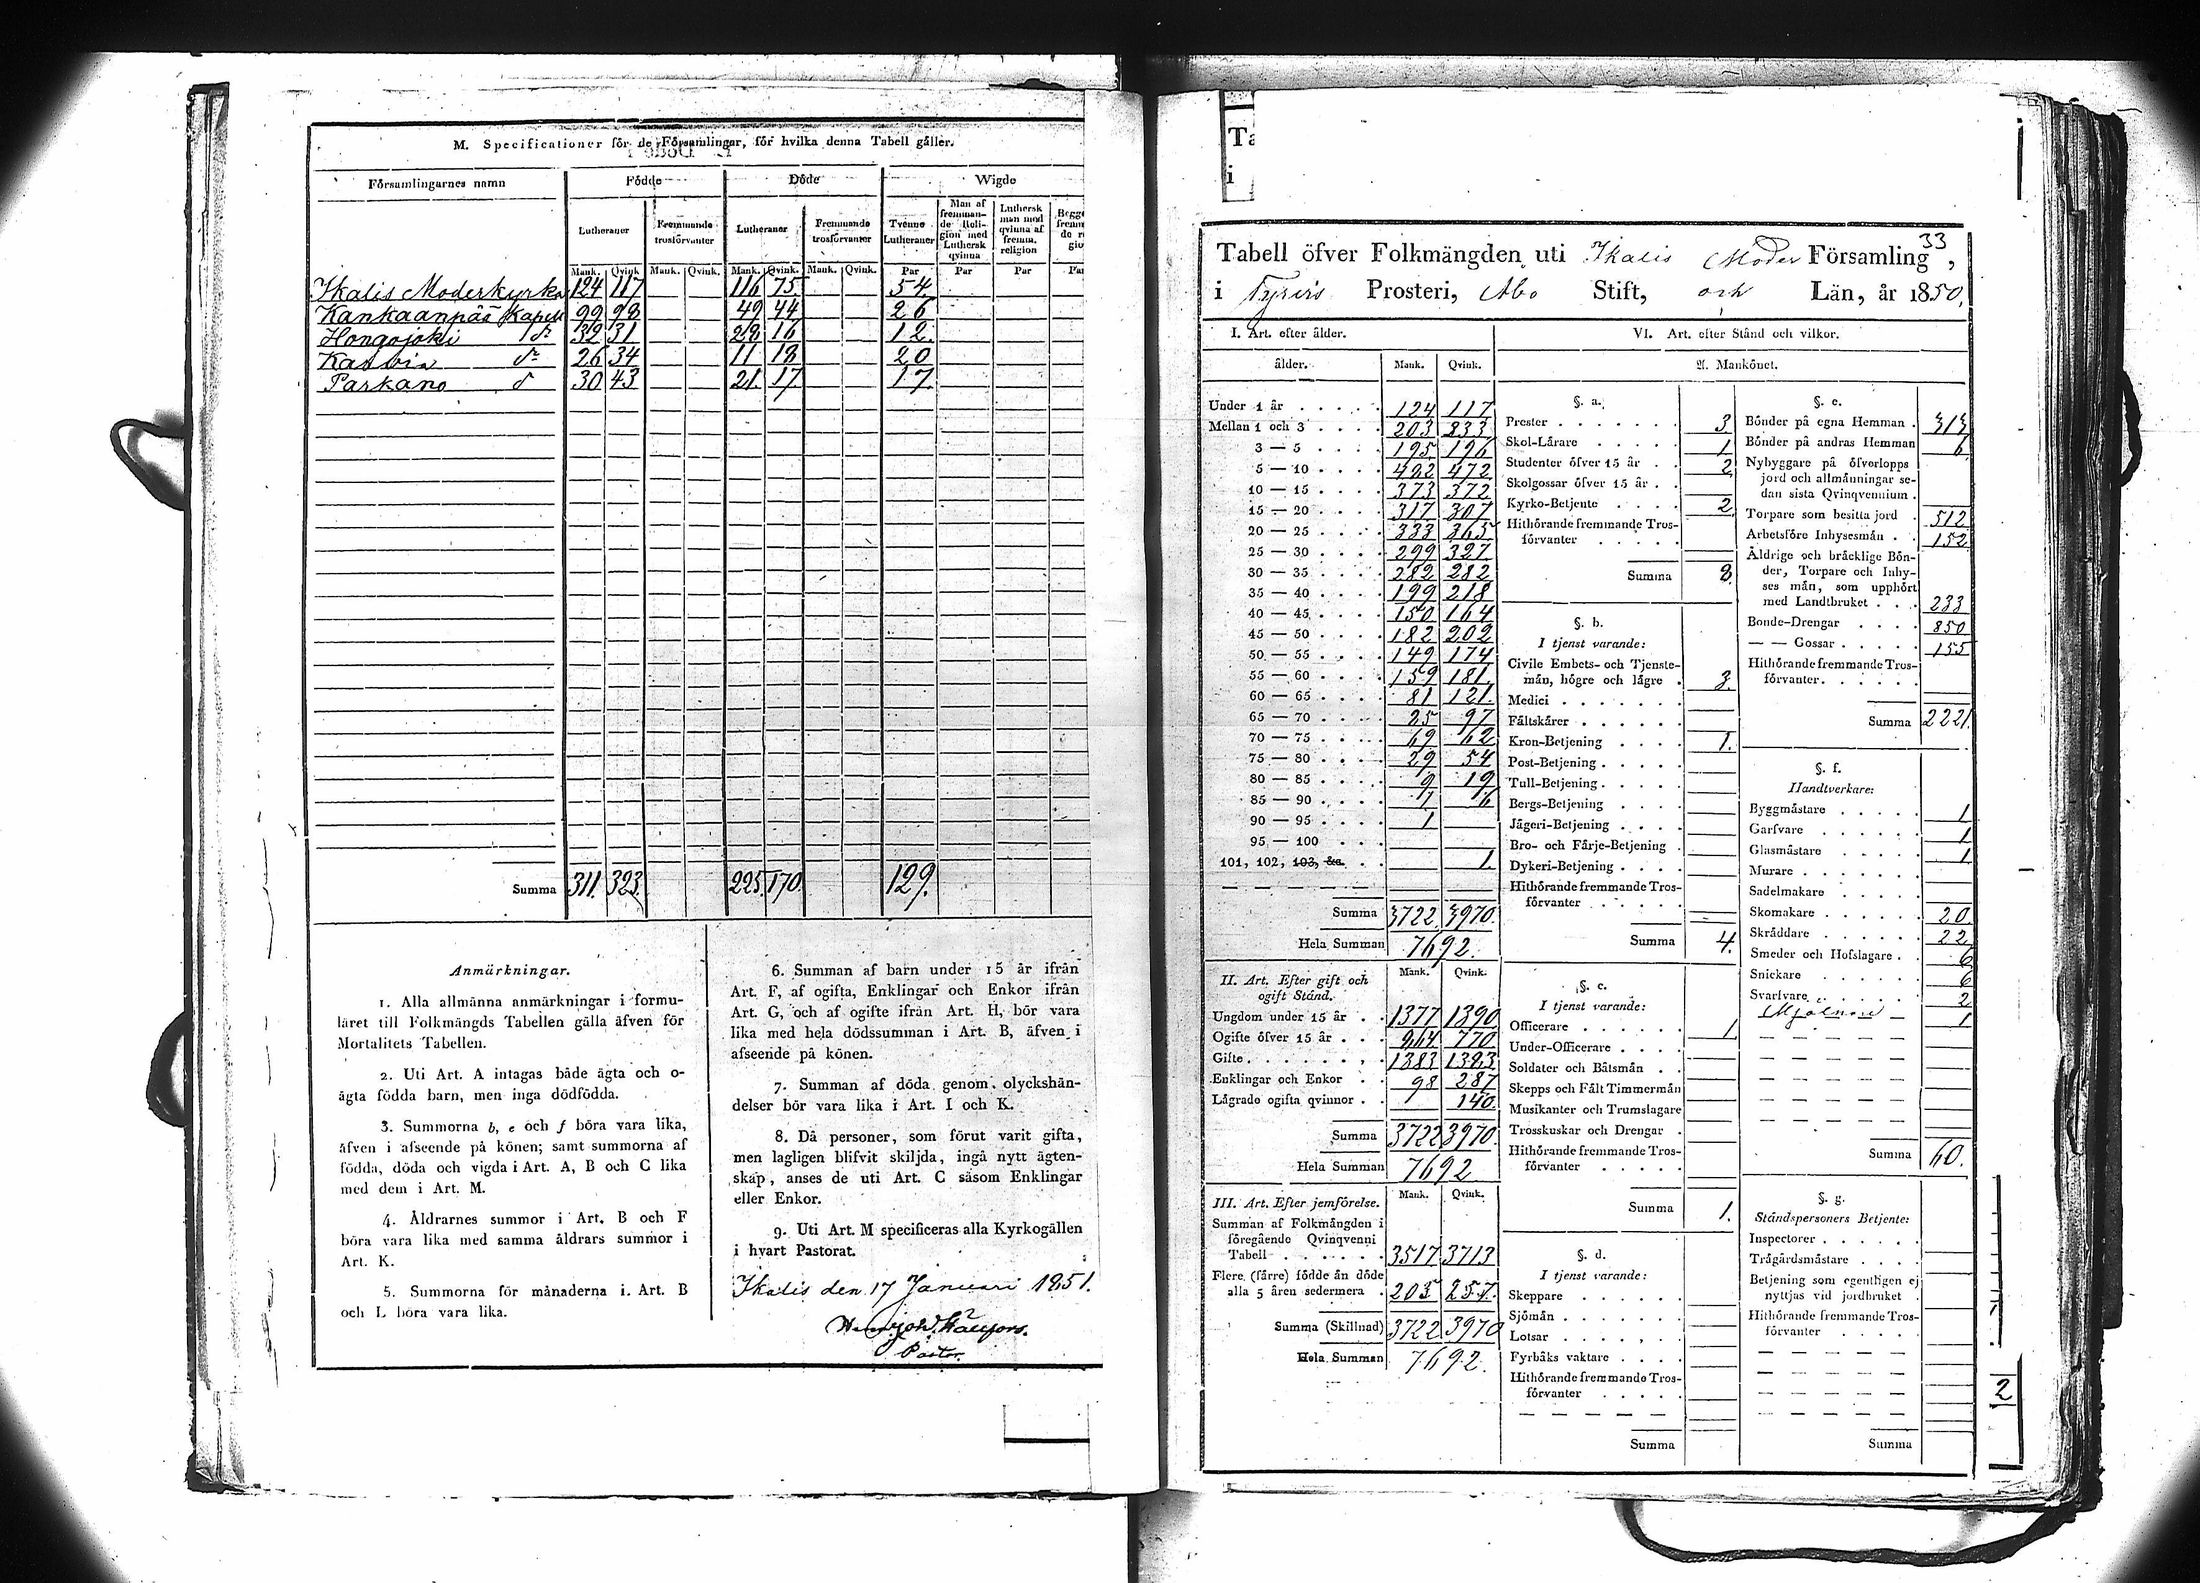 M. Specificationer för de Församlingar, för hvilka denna Tabell gäller.
Församlingarnes namn Födde Döde Wigde
Lutheraner Fremmande trosförvanter Lutheraner Fremmande trosförvanter Tvenne Lutheraner Man af fremmande Religion med Luthersk qvinna Luthersk man med qvinna af fremm. religion
Mank. Qvink Mank. Qvink. Mank. Qvink. Mank. Qvink. Par Par Par
Ikalis Moderkyrka 124 117 116 75 54
Kankaanpää Kapell 99 98 49 44 26
Hongojoki dº 32 31 28 16 12
Karvia dº 26 34 11 18 20
Parkano d 30 43 21 17 17
Summa 311 323 225 170 129.
Anmärkningar.
1. Alla allmänna anmärkningar i formu-
läret till Folkmängds Tabellen gälla äfven för
Mortalitets Tabellen.
2. Uti Art. A intagas både ägta och o-
ägta födda barn, men inga dödfödda.
3. Summorna b, e och f böra vara lika,
äfven i afseende på könen; samt summorna af
födda, döda och vigda i Art. A, B och C lika
med dem i Art. M.
4. Åldrarnes summor i Art. B och F
böra vara lika med samma åldrars summor i
Art. K.
5. Summorna för månaderna i Art. B
och L böra vara lika.
6. Summan af barn under 15 år ifrån
Art. F, af ogifta, Enklingar och Enkor ifrån
Art. G, och af ogifte ifrån Art. H, bör vara
lika med hela dödssumman i Art. B, äfven i
afseende på könen.
7. Summan af döda genom olyckshän-
delser bör vara lika i Art. I och K.
8. Då personer, som förut varit gifta,
men lagligen blifvit skiljda, ingå nytt ägten-
skap, anses de uti Art. C såsom Enklingar
eller Enkor.
9. Uti Art. M specificeras alla Kyrkogällen
i hvart Pastorat.
Ikalis den 17 Januari 1851.
Pastor.
33
Tabell öfver Folkmängden uti Ikalis Moder Församling,
i Tyrvis Prosteri, Åbo Stift, och Län, år 1850.
I. Art. efter ålder.
ålder. Mank. Qvink.
Under 1 år 124 117
Mellan 1 och 3 203 233
3 — 5 195 196
5 — 10 482 472
10 — 15 373 372
15 — 20 317 307
20 — 25 333 365
25 — 30 299 327
30 — 35 282 282
35 — 40 199 218
40 — 45 150 164
45 — 50 182 202
50 — 55 149 174
55 — 60 159 181
60 — 65 81 121
65 — 70 97
70 — 75 69 62
75 — 80 29 54
80 — 85 9 19
85 — 90
90 — 95 1
95 — 100
101, 102, 103, &c. 1.
Summa 3722 3970.
Hela Summan 7692.
II. Art. Efter gift och
ogift Stånd. Mank. Qvink.
Ungdom under 15 år 1377 1390
Ogifte öfver 15 år 864 770
Gifte 1383 1383
Enklingar och Enkor 98 287
Lägrade ogifta qvinnor 140
Summa 3722 3970.
Hela Summan 7692
III. Art. Efter jemförelse. Mank. Qvink.
Summan af Folkmängden i
föregående Qvinqvenni
Tabell 3517 3713
Flere (färre) födde än döde
alla 5 åren sedermera 205 257.
Summa (Skillnad) 3722 3970
Hela Summan 7692.
VI. Art. efter Stånd och vilkor.
A. Mankönet.
§. a.
Prester 3
Skol-Lärare 1
Studenter öfver 15 år 2
Skolgossar öfver 15 år
Kyrko-Betjente 2
Hithörande fremmande Tros-
förvanter
Summa 8.
§. b.
I tjenst varande:
Civile Embets- och Tjenste-
män, högre och lägre 3.
Medici
Fältskärer
Kron-Betjening 1.
Post-Betjening
Tull-Betjening
Bergs-Betjening
Jägeri-Betjening
Bro- och Färje-Betjening
Dykeri-Betjening
Hithörande fremmande Tros-
förvanter
Summa 4.
§. c.
I tjenst varande:
Officerare 1
Under-Officerare
Soldater och Båtsmän
Skepps och Fält Timmermän
Musikanter och Trumslagare
Trosskuskar och Drengar
Hithörande fremmande Tros-
förvanter
Summa 1.
§. d.
I tjenst varande:
Skeppare
Sjömän
Lotsar
Fyrbåks vaktare
Hithörande fremmande Tros-
förvanter
Summa
§. e.
Bönder på egna Hemman 313
Bönder på andras Hemman 6
Nybyggare på öfverlopps
jord och allmänningar se-
dan sista Qvinqvennium
Torpare som besitta jord 512
Arbetsföre Inhysesmän 152
Åldrige och bräcklige Bön-
der, Torpare och Inhy-
ses män, som upphört
med Landtbruket 233
Bonde-Drengar 850
— — Gossar 155
Hithörande fremmande Tros-
förvanter
Summa 2221.
§. f.
Handtverkare:
Byggmästare 1
Garfvare 1
Glasmästare 1
Murare
Sadelmakare
Skomakare 20
Skräddare 22
Smeder och Hofslagare 6
Snickare 6
Svarfvare 2
Mjölnare 1
Summa 60.
§. g.
Ståndspersoners Betjente:
Inspectorer
Trägårdsmästare
Betjening som egentligen ej
nyttjas vid jordbruket
Hithörande fremmande Tros-
förvanter
Summa
2